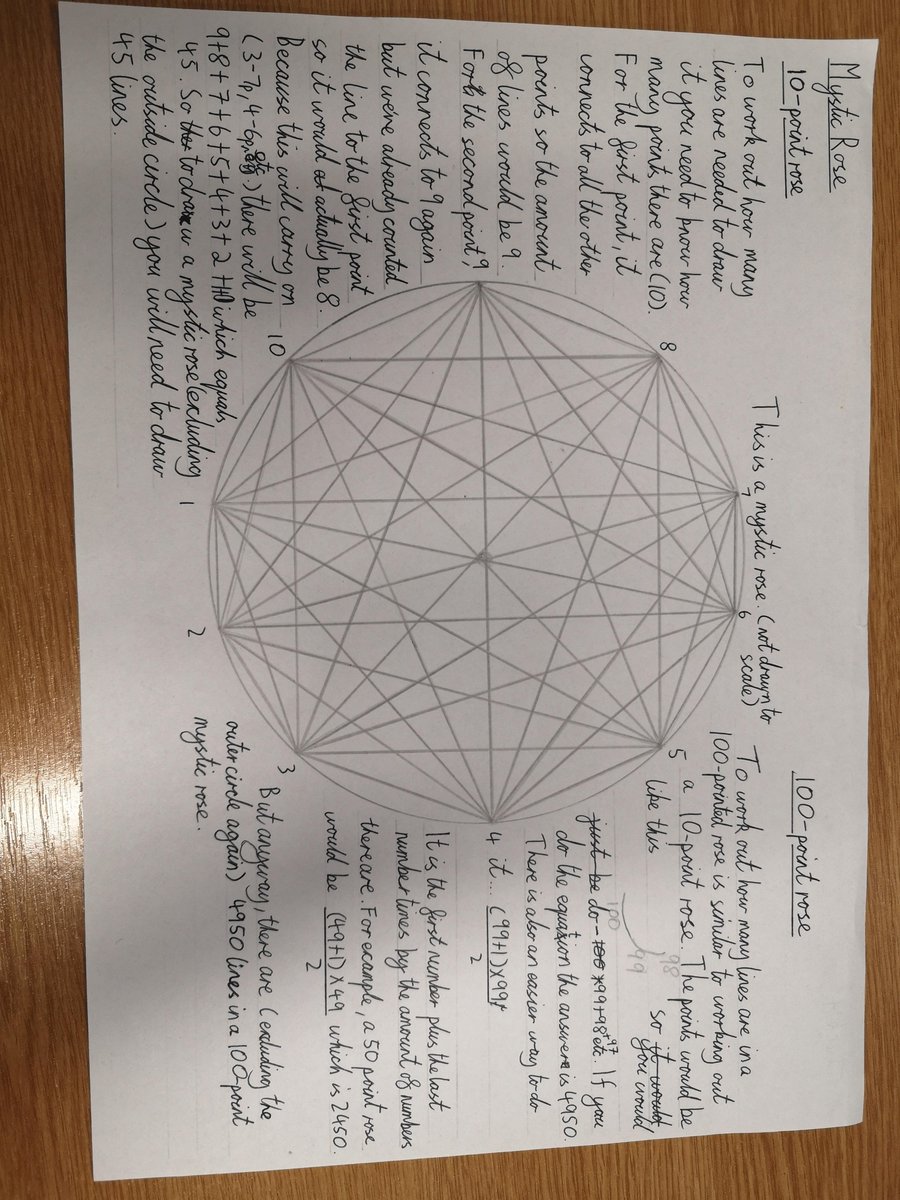 Mystic Rose
10-point rose
To work out how many
lines are needed to draw
it you need to know how
many points there are (10).
For the first point, it
connects to all the other
points so the amount
of lines would be 9.
For the second point,
it connects to 9 again
but we've already counted
the line to the first point
so it would actually be 8.
Because this will carry on
(3-7p, 4-6p, etc) there will be
9+8+7+6+5+4+3+2+1 which equals
45. So to draw a mystic rose (excluding
the outside circle) you will need to draw
45 lines.
This is a mystic rose. (not drawn to
scale)
1
2
3
4
5
6
7
8
9
10
100-point rose
To work out how many lines are in a
100-pointed rose is similar to working out
a 10-point rose. The points would be
like this
100
99
98
so it would
you would
just be do - 100 + 99+98+97 etc. If you
do the equation the answer is 4950.
There is also an easier way to do
it... (99+1)×99
2
It is the first number plus the last
number times by the amount of numbers
there are. For example, a 50 point rose
would be (49+1)×49 which is 2450.
2
But anyway, there are (excluding the
outer circle again) 4950 lines in a 100-point
mystic rose.